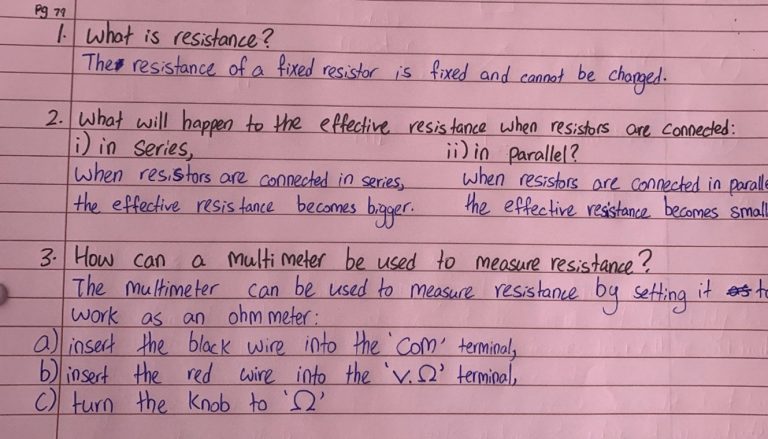 Pg 79
1. What is resistance?
The resistance of a fixed resistor is fixed and cannot be changed.
2. What will happen to the effective resistance when resistors are connected:
i) in series, ii) in parallel?
When resistors are connected in series, When resistors are connected in paralle
the effective resistance becomes bigger. the effective resistance becomes small
3. How can a multimeter be used to measure resistance?
The multimeter can be used to measure resistance by setting it to
work as an ohmmeter:
a) insert the black wire into the 'COM' terminal,
b) insert the red wire into the 'V.Ω' terminal,
c) turn the knob to 'Ω'